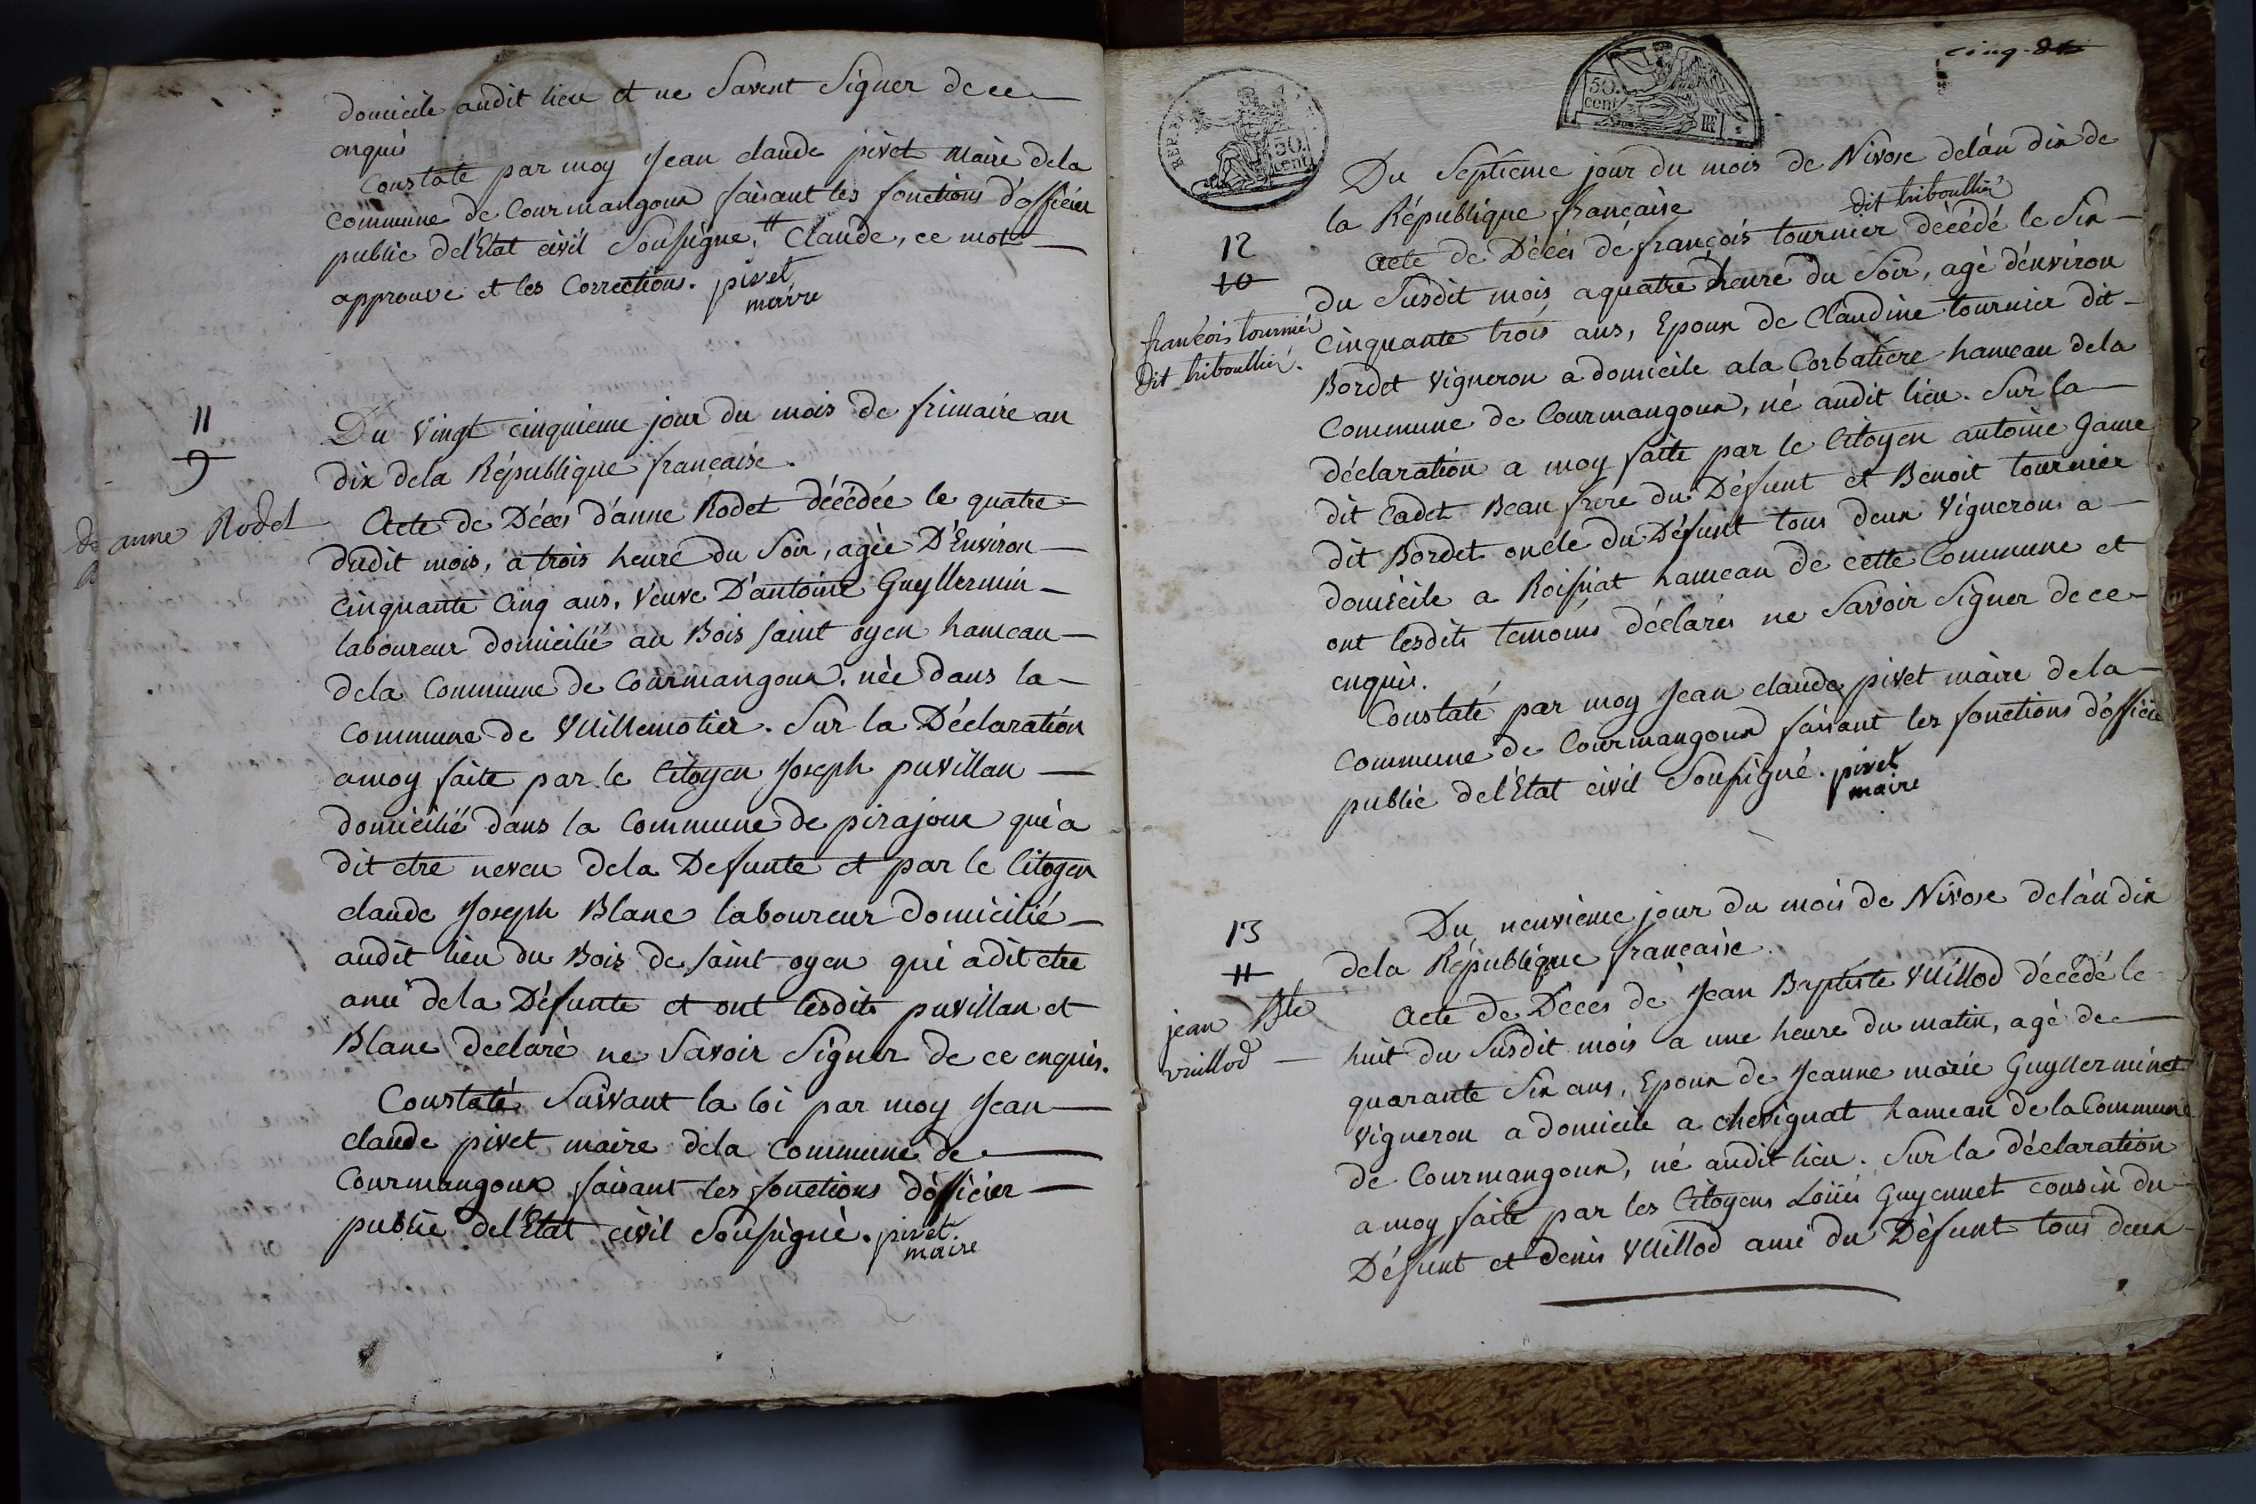 domicile audit lieu et ne Savent Signer de ce
enquis
Constaté par moy Jean claude pivet maire dela
commune de Courmangoux faisant les fonctions d'officier
public del'Etat civil Soussigné, # Claude, ce mot
approuve et les Corrections. pivet
maire
11
9
Du vingt cinquieme jour du mois de frimaire an
dix dela République francaise.
anne Rodet
Acte de Décès d'anne Rodet décédée le quatre
dudit mois, a trois heure du Soir, agée D'Environ
cinquante cinq ans, veuve D'antoine Guyllermin
laboureur domicilié au Bois saint oyen hameau
dela Commune de Courmangoux. née dans la
commune de Vuillemotier. Sur la Déclaration
amoy faite par le Citoyen Joseph puvillan
domicilié dans la Commune de pirajoux qui a
dit etre neveu dela Defunte et par le Citoyen
claude Joseph Blanc laboureur domicilié
audit lieu du Bois de saint oyen qui a dit etre
ami dela Défunte et ont lesdits puvillan et
Blanc declaré ne Savoir Signer de ce enquis.
Constaté Suivant la loi par moy Jean
claude pivet maire dela Commune de
Courmangoux faisant les fonctions d'officier
public del'Etat civil Soussigné. pivet
maire
cinq
REP.
50.
cent
50.
cent
RF
Du Septieme jour du mois de Nivose delan dix de
la République française
12
10
françois tournier
dit triboullier.
dit triboullier
Acte de Décès de françois tournier décédé le Six
du Susdit mois a quatre heure du Soir, agé d'environ
Cinquante trois ans, Epoux de Claudine tournier dit
Bordet vigneron a domicile a la Corbatiere hameau dela
Commune de Courmangoux, né audit lieu. Sur la
déclaration a moy faite par le Citoyen antoine Game
dit Cadet Beau frere du Défunt et Benoit tournier
dit Bordet oncle du Défunt tous deux Vignerons a
domicile a Roissiat hameau de cette Commune et
ont lesdits temoins déclarés ne Savoir Signer de ce
enquis.
Constaté par moy Jean claude pivet maire dela
commune de Courmangoux faisant les fonctions d'officier
public del'Etat civil Soussigné. pivet
maire
13
11
Du neuvieme jour du mois de Nivose delan dix
dela République francaise.
jean Bte
vuillod
Acte de Décès de Jean Baptiste Vuillod décédé le
huit du Susdit mois a une heure du matin, agé de
quarante Six ans, Epoux de Jeanne marie Guyllerminet
vigneron a domicile a chevignat hameau de la Commune
de Courmangoux, né audit lieu. Sur la déclaration
a moy faite par les Citoyens Loüis Guyennet cousin du
Défunt et denis Vuillod ami du Défunt tous deux